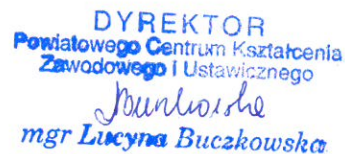 DYREKTOR
Powiatowego Centrum Kształcenia
Zawodowego i Ustawicznego
Buczkowska
mgr Lucyna Buczkowska